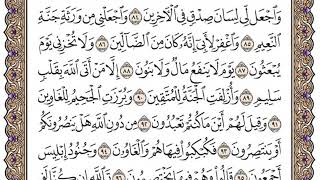 وَٱجْعَل لِّي لِسَانَ صِدْقٍ فِي ٱلْآخِرِينَ ٨٤ وَٱجْعَلْنِي مِن وَرَثَةِ جَنَّةِ
ٱلنَّعِيمِ ٨٥ وَٱغْفِرْ لِأَبِي إِنَّهُۥ كَانَ مِنَ ٱلضَّآلِّينَ ٨٦ وَلَا تُخْزِنِي يَوْمَ
يُبْعَثُونَ ٨٧ يَوْمَ لَا يَنفَعُ مَالٌ وَلَا بَنُونَ ٨٨ إِلَّا مَنْ أَتَى ٱللَّهَ بِقَلْبٍ
سَلِيمٍ ٨٩ وَأُزْلِفَتِ ٱلْجَنَّةُ لِلْمُتَّقِينَ ٩٠ وَبُرِّزَتِ ٱلْجَحِيمُ لِلْغَاوِينَ
٩١ وَقِيلَ لَهُمْ أَيْنَ مَا كُنتُمْ تَعْبُدُونَ ٩٢ مِن دُونِ ٱللَّهِ هَلْ يَنصُرُونَكُمْ
أَوْ يَنتَصِرُونَ ٩٣ فَكُبْكِبُوا۟ فِيهَا هُمْ وَٱلْغَاوُۥنَ ٩٤ وَجُنُودُ إِبْلِيسَ
أَجْمَعُونَ ٩٥ قَالُوا۟ وَهُمْ فِيهَا يَخْتَصِمُونَ ٩٦ تَٱللَّهِ إِن كُنَّا لَفِي